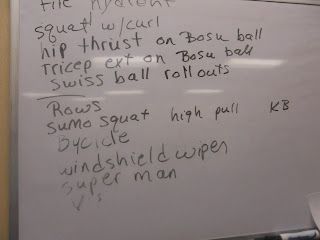 fire hydrant
squat w/curl
hip thrust on Bosu ball
Tricep ext on Bosu ball
Swiss ball rollouts
Rows
sumo squat high pull KB
Bycicle
windshield wiper
super man